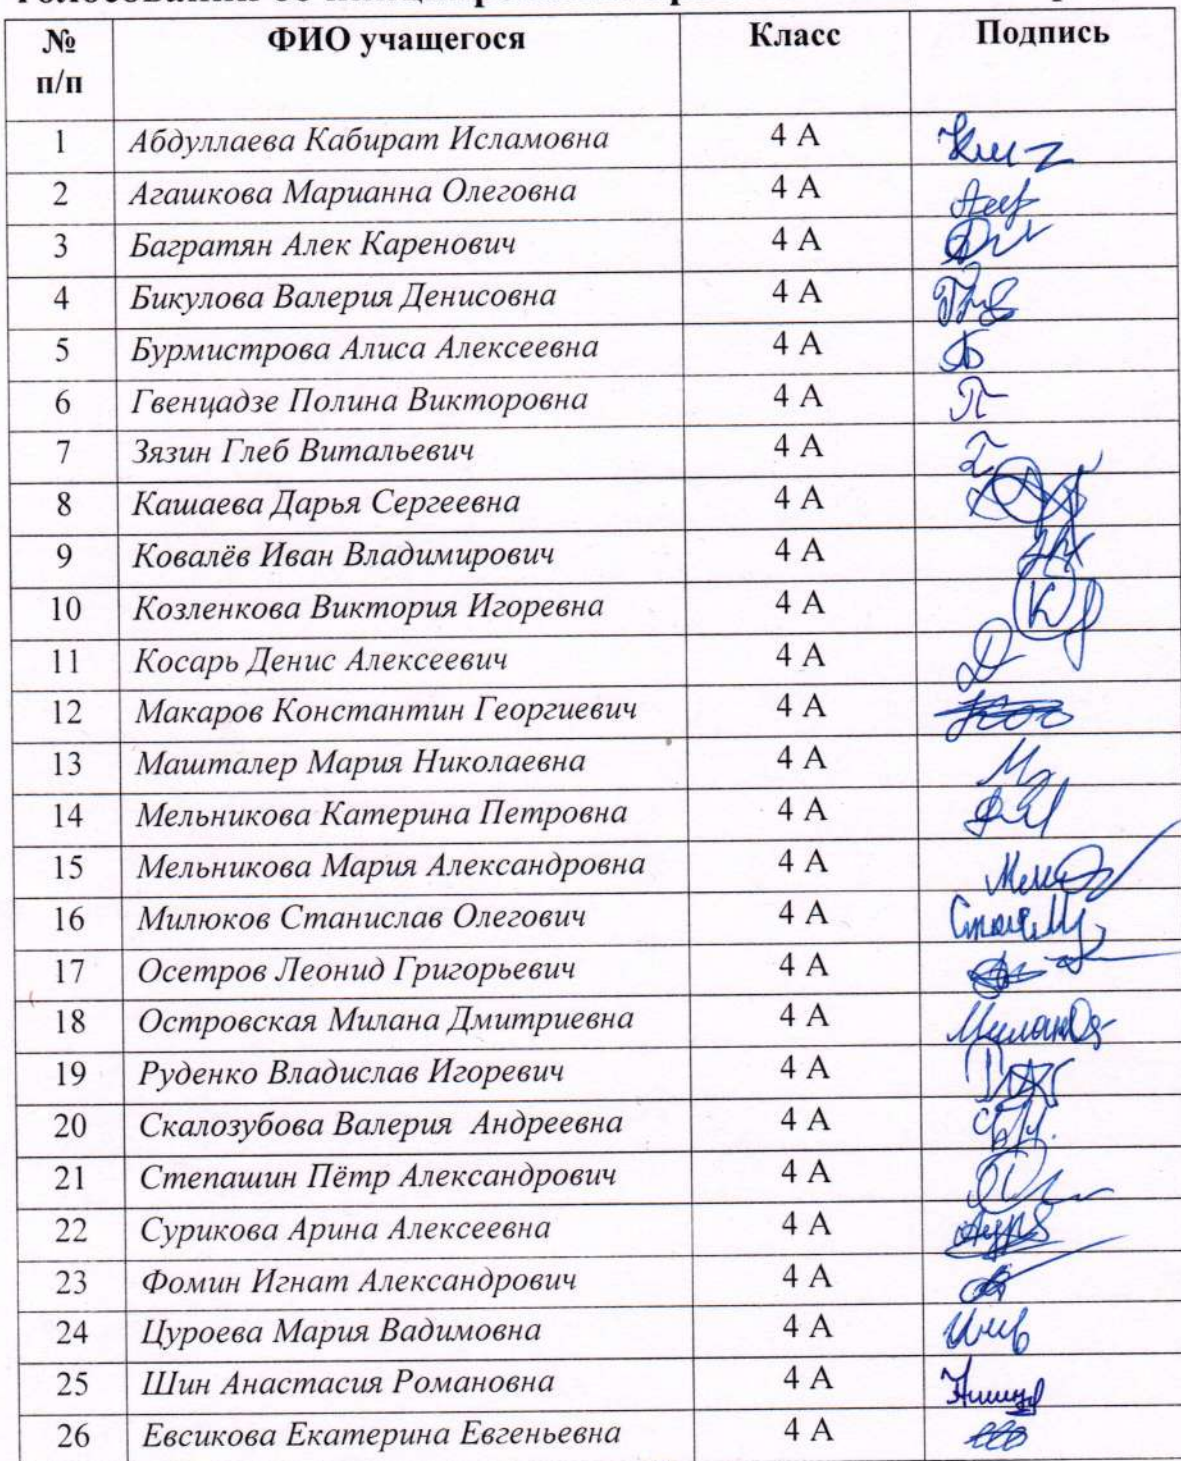 № п/п ФИО учащегося Класс Подпись
1 Абдуллаева Кабират Исламовна 4 А
2 Агашкова Марианна Олеговна 4 А
3 Багратян Алек Каренович 4 А
4 Бикулова Валерия Денисовна 4 А
5 Бурмистрова Алиса Алексеевна 4 А
6 Гвенцадзе Полина Викторовна 4 А
7 Зязин Глеб Витальевич 4 А
8 Кашаева Дарья Сергеевна 4 А
9 Ковалёв Иван Владимирович 4 А
10 Козленкова Виктория Игоревна 4 А
11 Косарь Денис Алексеевич 4 А
12 Макаров Константин Георгиевич 4 А
13 Машталер Мария Николаевна 4 А
14 Мельникова Катерина Петровна 4 А
15 Мельникова Мария Александровна 4 А
16 Милюков Станислав Олегович 4 А
17 Осетров Леонид Григорьевич 4 А
18 Островская Милана Дмитриевна 4 А
19 Руденко Владислав Игоревич 4 А
20 Скалозубова Валерия Андреевна 4 А
21 Степашин Пётр Александрович 4 А
22 Сурикова Арина Алексеевна 4 А
23 Фомин Игнат Александрович 4 А
24 Цуроева Мария Вадимовна 4 А
25 Шин Анастасия Романовна 4 А
26 Евсикова Екатерина Евгеньевна 4 А